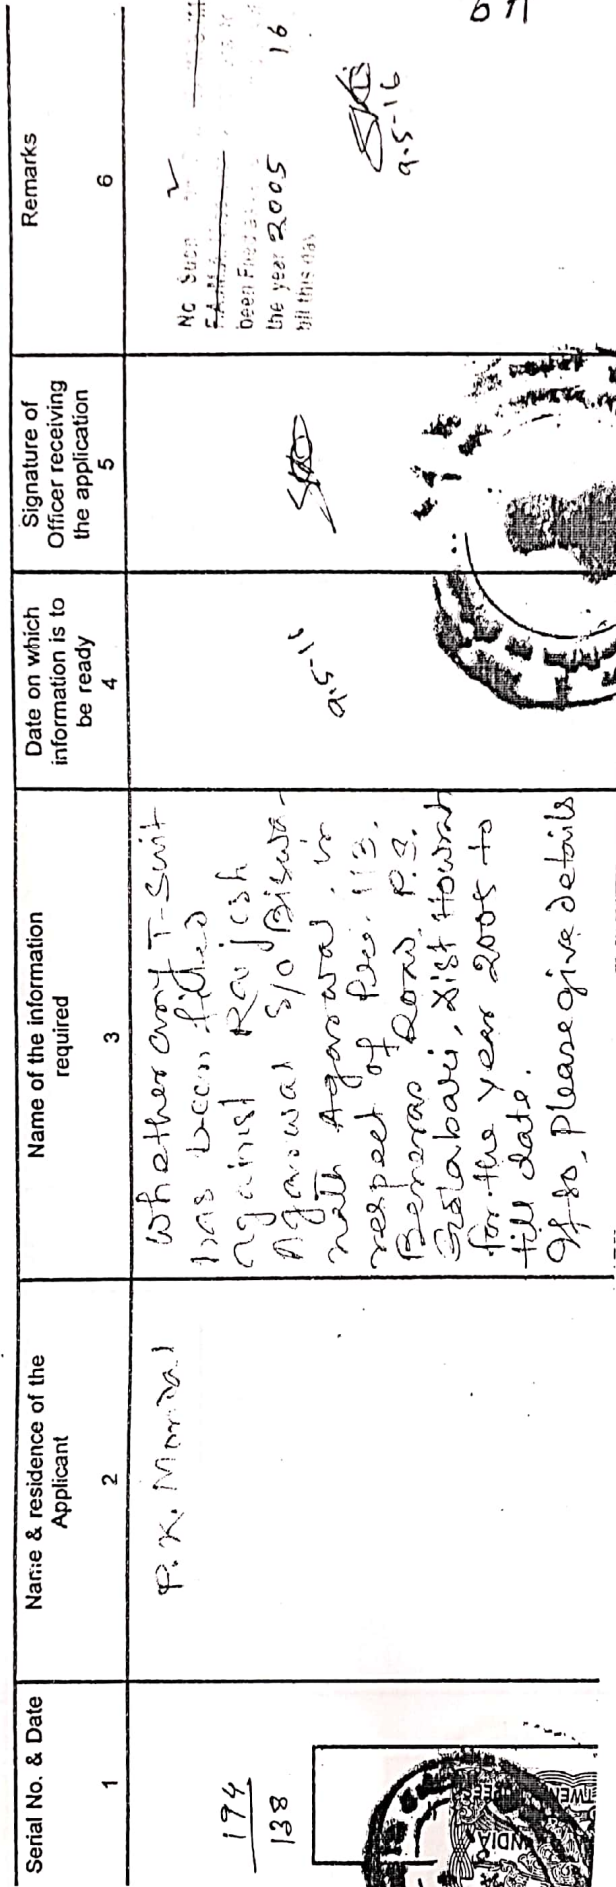 Serial No. & Date
1
Name & residence of the
Applicant
2
Name of the information
required
3
Date on which
information is to
be ready
4
Signature of
Officer receiving
the application
5
Remarks
6
194
138
P. K. Mondal
Whether any T-Suit
has been filled
against Rajesh
Agarwal S/O Biswa-
nath Agarwal, in
respect of Pre. 113,
Beneras Road, P.S.
Golabari, Dist Howrah
for the year 2005 to
till date.
If so, Please give details
9-5-16
No Such
been Filed
the year 2005 16
till this day
9-5-16
INDIA
TWEN